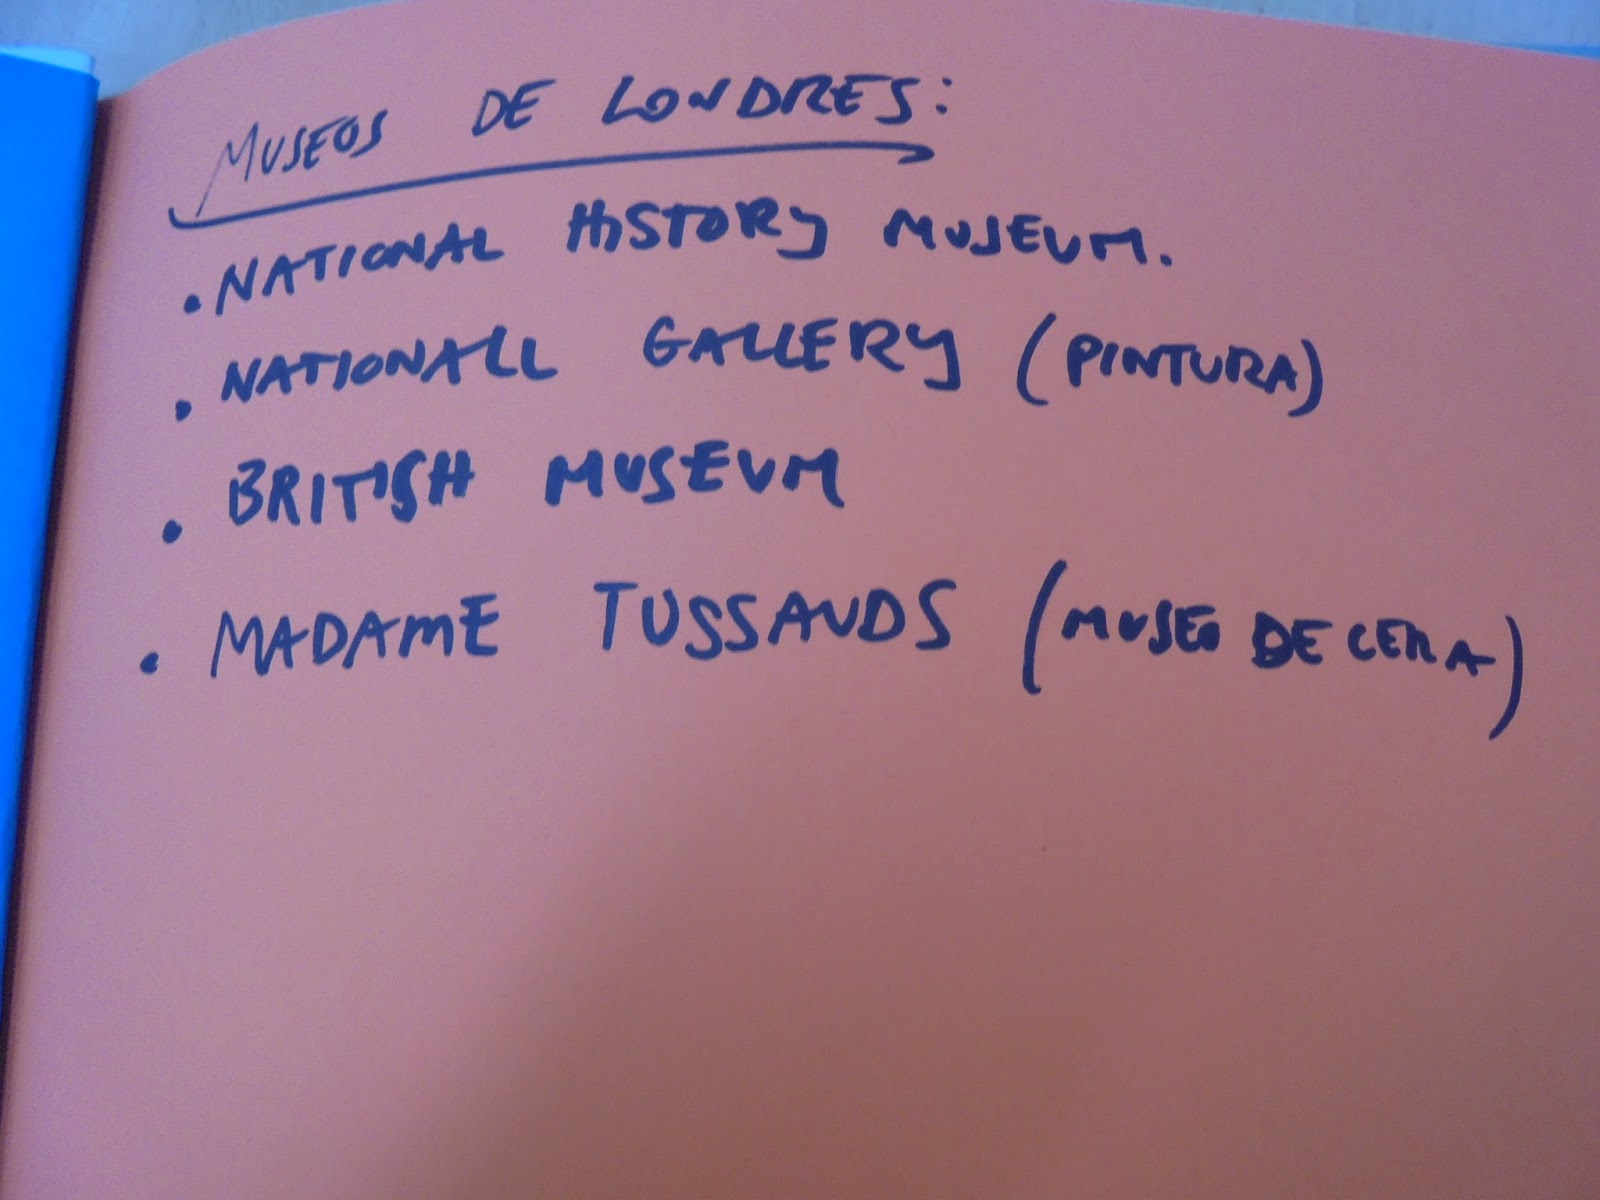 MUSEOS DE LONDRES:
• NATIONAL HISTORY MUSEUM.
• NATIONALL GALLERY (PINTURA)
• BRITISH MUSEUM
• MADAME TUSSAUDS (MUSEO DE CERA)